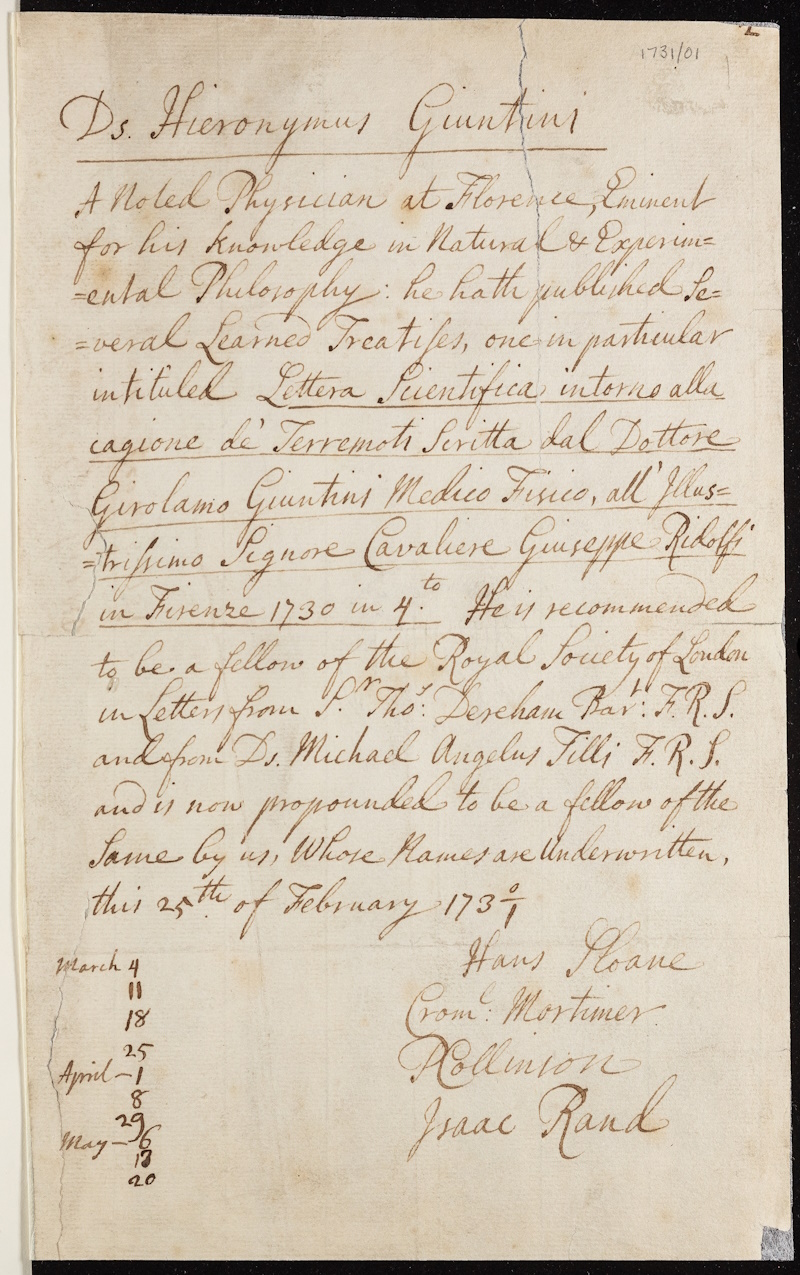 1731/01
Ds. Hieronymus Giuntini
A Noted Physician at Florence, Eminent
for his knowledge in Natural & Experim=
=ental Philosophy: he hath published Se=
=veral Learned Treatises, one in particular
intituled Lettera Scientifica intorno alla
cagione de' Terremoti Scritta dal Dottore
Girolamo Giuntini Medico Fisico, all' Illus=
=trissimo Signore Cavaliere Giuseppe Ridolfi
in Firenze 1730 in 4.to He is recommended
to be a fellow of the Royal Society of London
in Letters from S.r Tho.s: Dereham Bar.t: F.R.S.
and from Ds. Michael Angelus Tilli F.R.S.
and is now propounded to be a fellow of the
Same by us, Whose Names are Underwritten,
this 25th. of February 173 0/1
Hans Sloane
Crom.l: Mortimer.
PCollinson
Isaac Rand
March 4
11
18
25
April - 1
8
29
May - 6
13
20